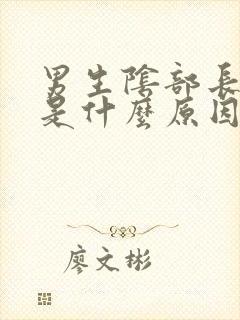 男生陰部長
是什麼原因
廖文彬